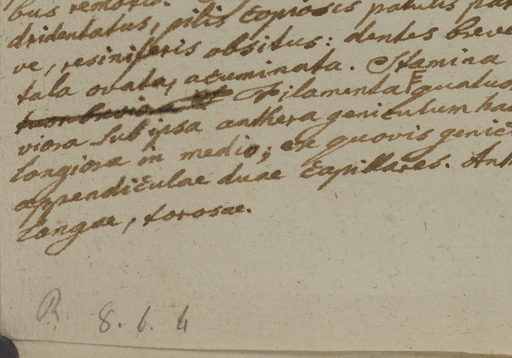 bus remotio
dridentatus, pilis copiosis patulis
ve, resiniferis obsitus: dentes breve
tala ovata, acuminata. Stamina
Filamenta quatuo
viora sub ipsa anthera geniculum ha
longiora in medio; ex quovis genic
appendiculae duae capillares. Anth
longae, torosae.
R. 8. 6. 4